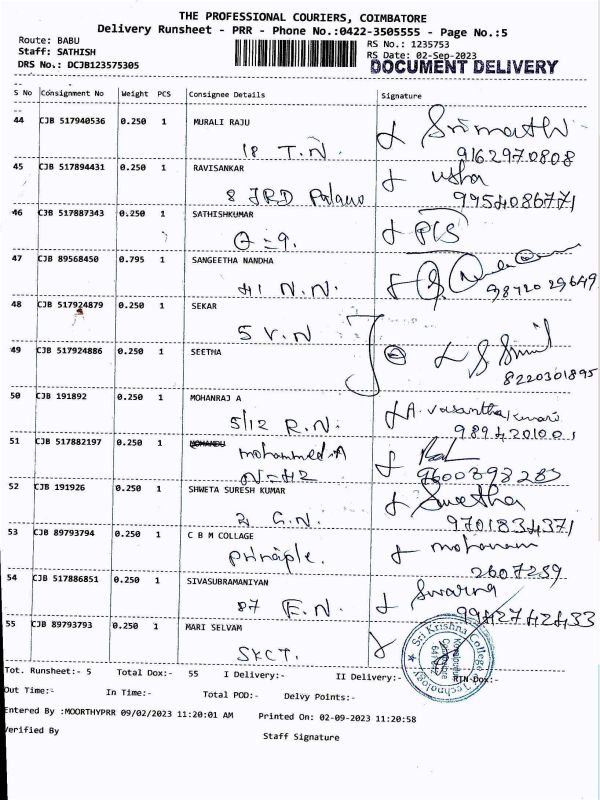 THE PROFESSIONAL COURIERS, COIMBATORE
Delivery Runsheet - PRR - Phone No.:0422-3505555 - Page No.:5
Route: BABU
RS No.: 1235753
Staff: SATHISH
RS Date: 02-Sep-2023
DRS No.: DCJB123575305
DOCUMENT DELIVERY
S No Consignment No Weight PCS Consignee Details Signature
44 CJB 517940536 0.250 1 MURALI RAJU
18 T.N. Srimathi
9162970808
45 CJB 517894431 0.250 1 RAVISANKAR usha
8 JRD
9954086771
46 CJB 517887343 0.250 1 SATHISHKUMAR
47 CJB 89568450 0.795 1 SANGEETHA NANDHA
41 N.N.
9872029649
48 CJB 517924879 0.250 1 SEKAR
5 V.N
49 CJB 517924886 0.250 1 SEETHA
8220301895
50 CJB 191892 0.250 1 MOHANRAJ A
5/12 R.N. A. Vasanthakumari
51 CJB 517882197 0.250 1 mohammed.A
N=42
9600398283
52 CJB 191926 0.250 1 SHWETA SURESH KUMAR Swetha
G.N.
9701834371
53 CJB 89793794 0.250 1 C B M COLLAGE
principle. mohanam
2607239
54 CJB 517886851 0.250 1 SIVASUBRAMANIYAN Swarna
87 E.N.
9942742433
55 CJB 89793793 0.250 1 MARI SELVAM
SKCT.
Sri Krishna College
Technology
Tot. Runsheet:- 5 Total Dox:- 55 I Delivery:- II Delivery:- RTN Dox:-
Out Time:- In Time:- Total POD:- Delvy Points:-
Entered By :MOORTHYPRR 09/02/2023 11:20:01 AM Printed On: 02-09-2023 11:20:58
Verified By Staff Signature